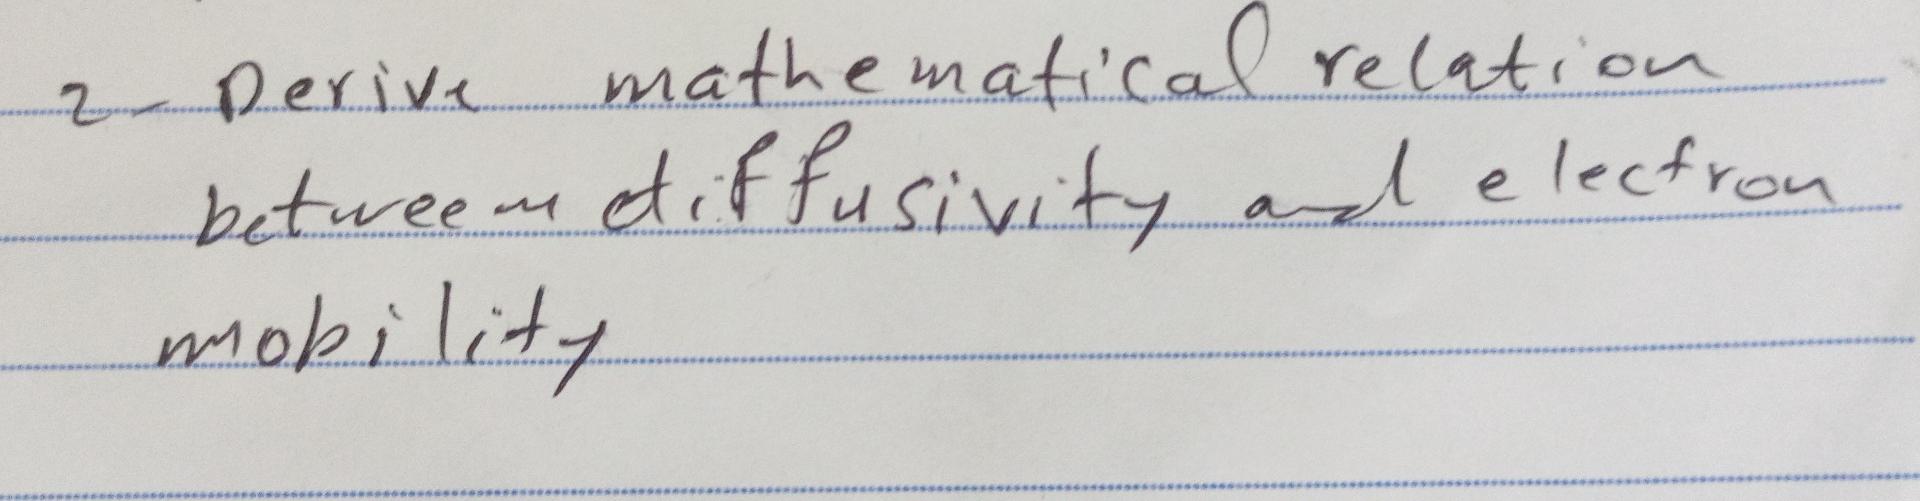 2- Derive mathematical relation
between diffusivity and electron
mobility